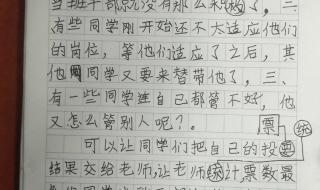 当班干部就没有那么积极了。二
有些同学刚开始还不太适应他们
的岗位，等他们适应了之后，其
他同学又要来替带他了，三、
有一些同学连自己都管不好，他
又怎么管别人呢？。
票
统
可以让同学们把自己的投票
结果交给老师，让老师统计票数最